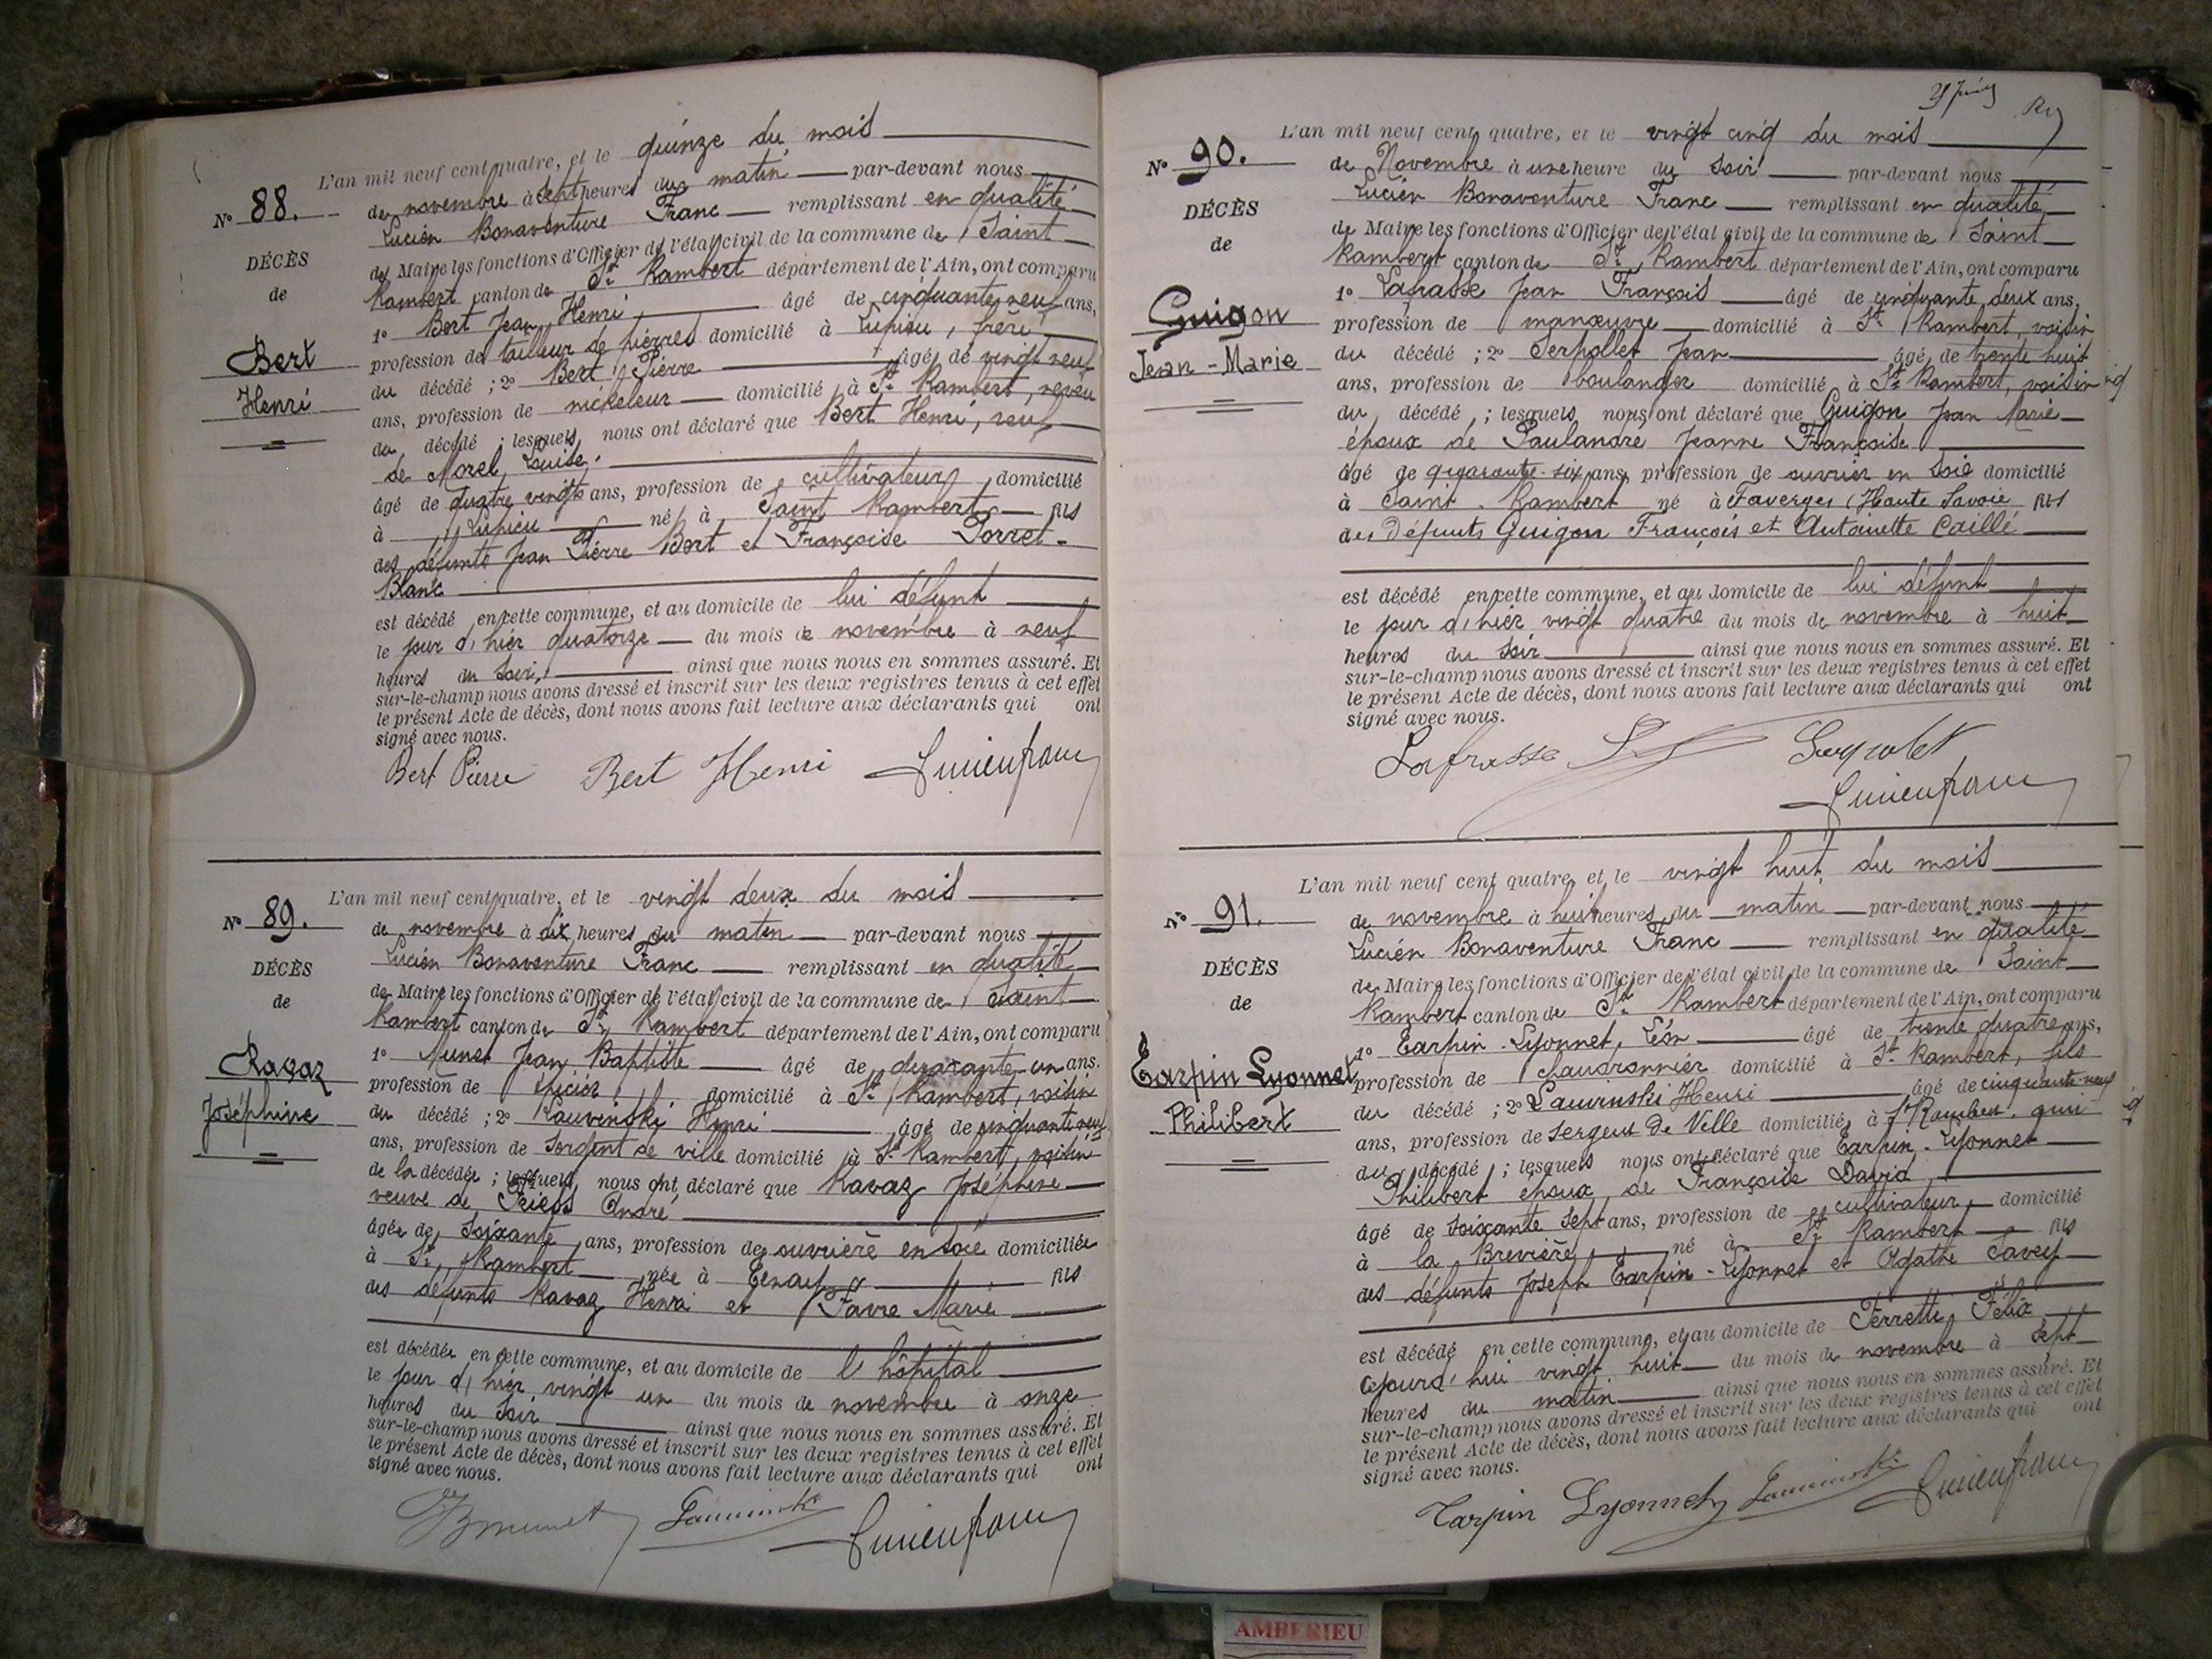 L'an mil neuf cent quatre, et le quinze du mois
N° 88.
de novembre à sept heures du matin par-devant nous
Lucien Bonaventure Franc remplissant en qualité
DÉCÈS
de Maire les fonctions d'Officier de l'état civil de la commune de Saint
de
Rambert canton de St Rambert département de l'Ain, ont comparu
1° Bert Jean Henri, âgé de cinquante neuf ans,
Bert
profession de tailleur de pierres domicilié à Lupieu, frère
Henri
du décédé ; 2° Bert Pierre âgé de vingt neuf
ans, profession de nickeleur domicilié à St Rambert, neveu
du décédé ; lesquels nous ont déclaré que Bert Henri, veuf
de Morel Louise,
âgé de quatre vingts ans, profession de cultivateur domicilié
à Lupieu né à Saint Rambert fils
des défunts Jean Pierre Bert et Françoise Porret-
Blanc
est décédé en cette commune, et au domicile de lui défunt
le jour d'hier quatorze du mois de novembre à neuf
heures du soir, ainsi que nous nous en sommes assuré. Et
sur-le-champ nous avons dressé et inscrit sur les deux registres tenus à cet effet
le présent Acte de décès, dont nous avons fait lecture aux déclarants qui ont
signé avec nous.
Bert Pierre Bert Henri Lucien Franc
L'an mil neuf cent quatre, et le vingt deux du mois
N° 89.
de novembre à dix heures du matin par-devant nous
Lucien Bonaventure Franc remplissant en qualité
DÉCÈS
de Maire les fonctions d'Officier de l'état civil de la commune de Saint
de
Rambert canton de St Rambert département de l'Ain, ont comparu
1° Munet Jean Baptiste âgé de quarante un ans.
Ravaz
profession de domicilié à St Rambert, voisin
Joséphine
du décédé ; 2° Lauvinski Henri âgé de cinquante neuf
ans, profession de sergent de ville domicilié à St Rambert, voisin
de la décédée ; lesquels nous ont déclaré que Ravaz Joséphine
veuve de André
âgée de soixante ans, profession de ouvrière en soie domiciliée
à St Rambert née à Tenay fils
des défunts Ravaz Henri et Favre Marie
est décédée en cette commune, et au domicile de l'hôpital
le jour d'hier vingt un du mois de novembre à onze
heures du soir ainsi que nous nous en sommes assuré. Et
sur-le-champ nous avons dressé et inscrit sur les deux registres tenus à cet effet
le présent Acte de décès, dont nous avons fait lecture aux déclarants qui ont
signé avec nous.
Lucien Franc
L'an mil neuf cent quatre, et le vingt cinq du mois
N° 90.
de Novembre à une heure du soir par-devant nous
Lucien Bonaventure Franc remplissant en qualité
DÉCÈS
de Maire les fonctions d'Officier de l'état civil de la commune de Saint
de
Rambert canton de St Rambert département de l'Ain, ont comparu
1° Lafrasse Jean François âgé de cinquante deux ans,
Guigon
profession de manœuvre domicilié à St Rambert, voisin
Jean-Marie
du décédé ; 2° Serpollet Jean âgé de trente huit
ans, profession de boulanger domicilié à St Rambert, voisin
du décédé ; lesquels nous ont déclaré que Guigon Jean Marie
époux de Paulandre Jeanne Françoise
âgé de quarante-six ans, profession de ouvrier en soie domicilié
à Saint-Rambert né à Faverges (Haute Savoie fils
des Défunts Guigon François et Antoinette Caillé
est décédé en cette commune, et au domicile de lui défunt
le jour d'hier vingt quatre du mois de novembre à huit
heures du soir ainsi que nous nous en sommes assuré. Et
sur-le-champ nous avons dressé et inscrit sur les deux registres tenus à cet effet
le présent Acte de décès, dont nous avons fait lecture aux déclarants qui ont
signé avec nous.
Lafrasse
Lucien Franc
L'an mil neuf cent quatre, et le vingt huit du mois
N° 91.
de novembre à huit heures du matin par-devant nous
Lucien Bonaventure Franc remplissant en qualité
DÉCÈS
de Maire les fonctions d'Officier de l'état civil de la commune de Saint
de
Rambert canton de St Rambert département de l'Ain, ont comparu
1° Tarpin-Lyonnet, Léon âgé de trente quatre ans,
Tarpin Lyonnet
profession de chaudronnier domicilié à St Rambert, fils
Philibert
du décédé ; 2° Lauvinski Henri âgé de cinquante-neuf
ans, profession de Sergent de Ville domicilié à St Rambert,
du décédé ; lesquels nous ont déclaré que Tarpin-Lyonnet
Philibert époux de Françoise David
âgé de soixante sept ans, profession de cultivateur domicilié
à la Brevière né à St Rambert fils
des défunts Joseph Tarpin-Lyonnet et Agathe Savey
est décédé en cette commune, et au domicile de Ferretti Félix
cejourd'hui vingt huit du mois de novembre à sept
heures du matin ainsi que nous nous en sommes assuré. Et
sur-le-champ nous avons dressé et inscrit sur les deux registres tenus à cet effet
le présent Acte de décès, dont nous avons fait lecture aux déclarants qui ont
signé avec nous.
Tarpin Lyonnet Lucien Franc
AMBERIEU